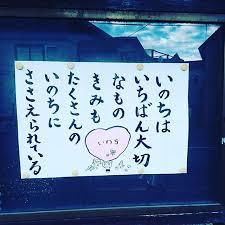 いのちは
いちばん大切
なもの
きみも
たくさんの
いのちに
ささえられている
いのち